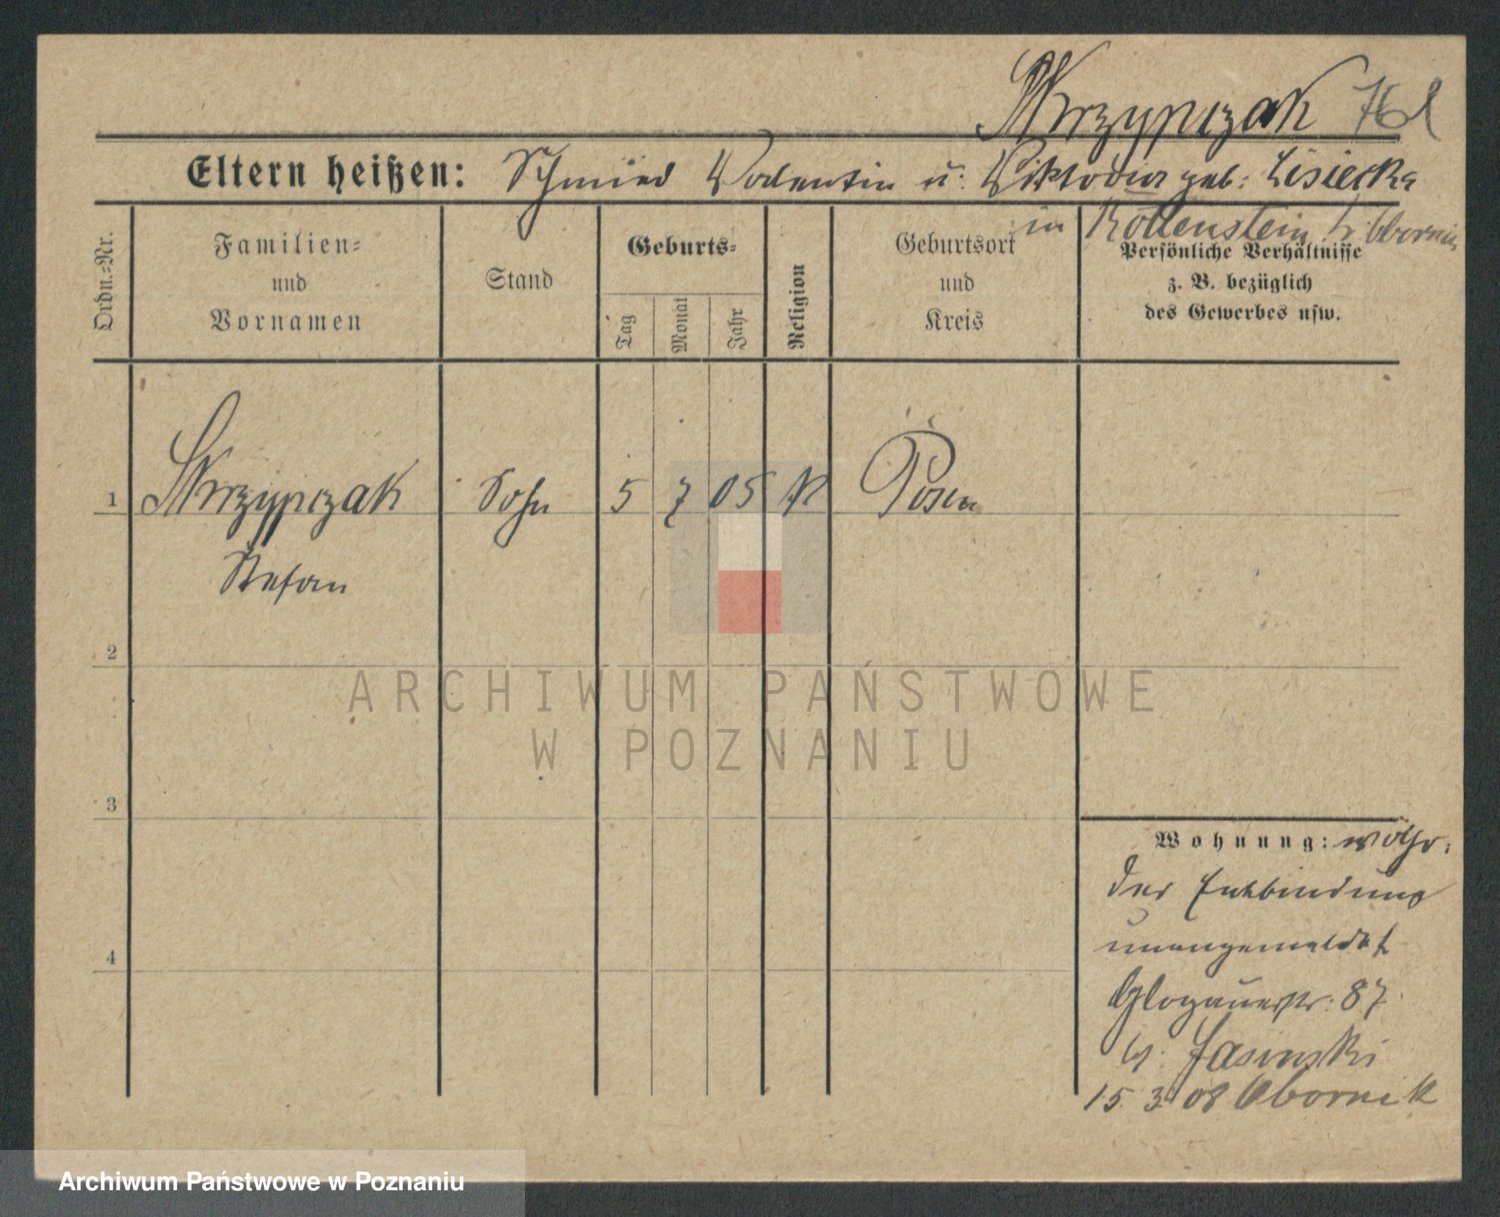 Skrzypczak 76d
Eltern heißen: Schmied Valentin u. Viktoria geb. Lisiecka
in Rottenstein
Ordn.=Nr.
Familien=
und
Vornamen
Stand
Geburts=
Tag
Monat
Jahr
Religion
Geburtsort
und
Kreis
Persönliche Verhältnisse
z. B. bezüglich
des Gewerbes usw.
1 Skrzypczak Sohn 5 7 05 K Posen
Stefan
2
ARCHIWUM PAŃSTWOWE
W POZNANIU
3
Wohnung:
der Entbindung
unangemeldet
Glogauerstr. 87
Jasinski
15. 3. 08 Obornik
4
Archiwum Państwowe w Poznaniu